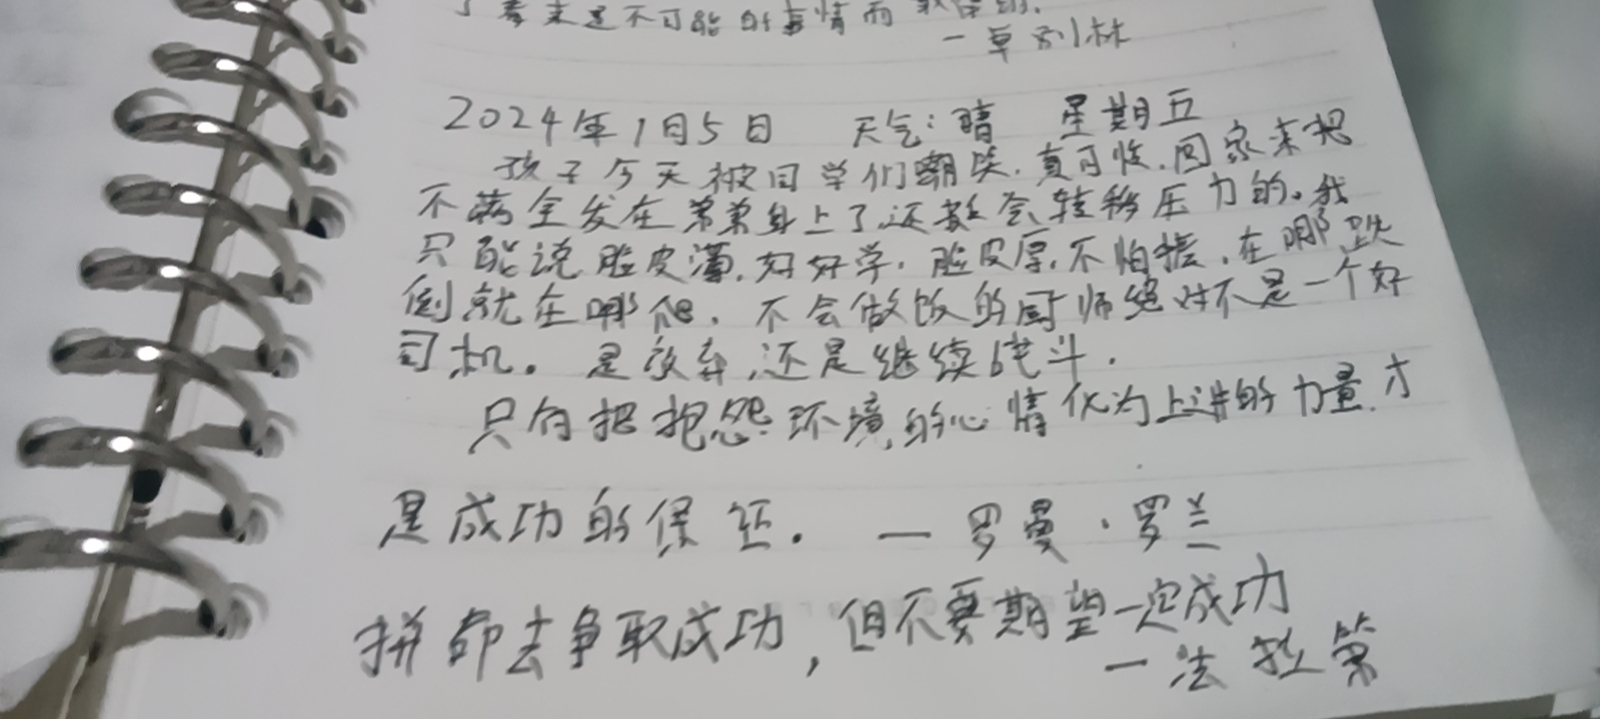 了看来是不可能的事情而获得的.
一卓别林
2024年1月5日 天气:晴 星期五
孩子今天被同学们嘲笑.真可恨.回家来把
不满全发在弟弟身上了,还挺会转移压力的。我
只能说脸皮薄.好好学.脸皮厚.不怕摇.在哪跌
倒就在哪爬.不会做饭的厨师绝对不是一个好
司机。是放弃,还是继续战斗.
只有把抱怨环境的心情化为上进的力量.才
是成功的保证.一罗曼·罗兰
拼命去争取成功,但不要期望一定成功
一法拉第